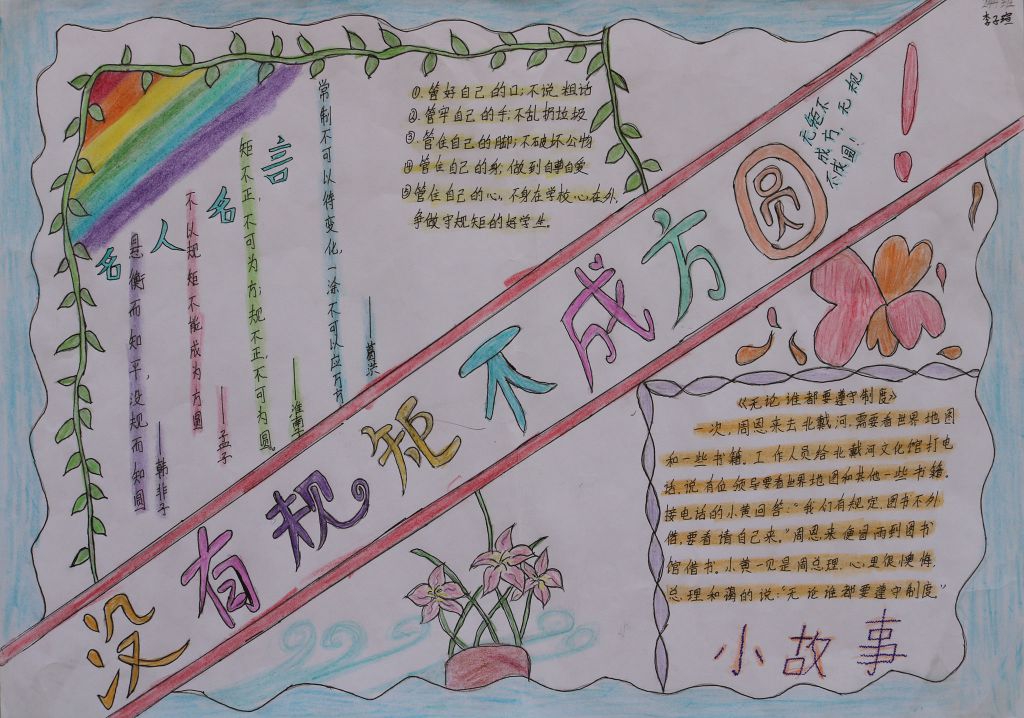 李子瑄
没有规矩不成方圆!
无矩不
成方，无规
不成圆!
名人名言
悬衡而知平，没规而知圆
——韩非子
不以规矩不能成为方圆
——孟子
矩不正，不可为方；规不正，不可为圆。
——淮南子
常制不可以待变化，一涂不可以应万方
——葛洪
①.管好自己的口；不说粗话
②.管牢自己的手；不乱扔垃圾
③.管住自己的脚；不破坏公物
④管住自己的身，做到自尊自爱
⑤管住自己的心，不身在学校心在外，
争做守规矩的好学生。
《无论谁都要遵守制度》
一次，周恩来去北戴河，需要看世界地图
和一些书籍。工作人员给北戴河文化馆打电
话，说，有位领导要看世界地图和其他一些书籍。
接电话的小黄回答：“我们有规定，图书不外
借，要看请自己来。”周恩来便冒雨到图书
馆借书。小黄一见是周总理，心里很懊悔，
总理和蔼的说：“无论谁都要遵守制度”
小故事